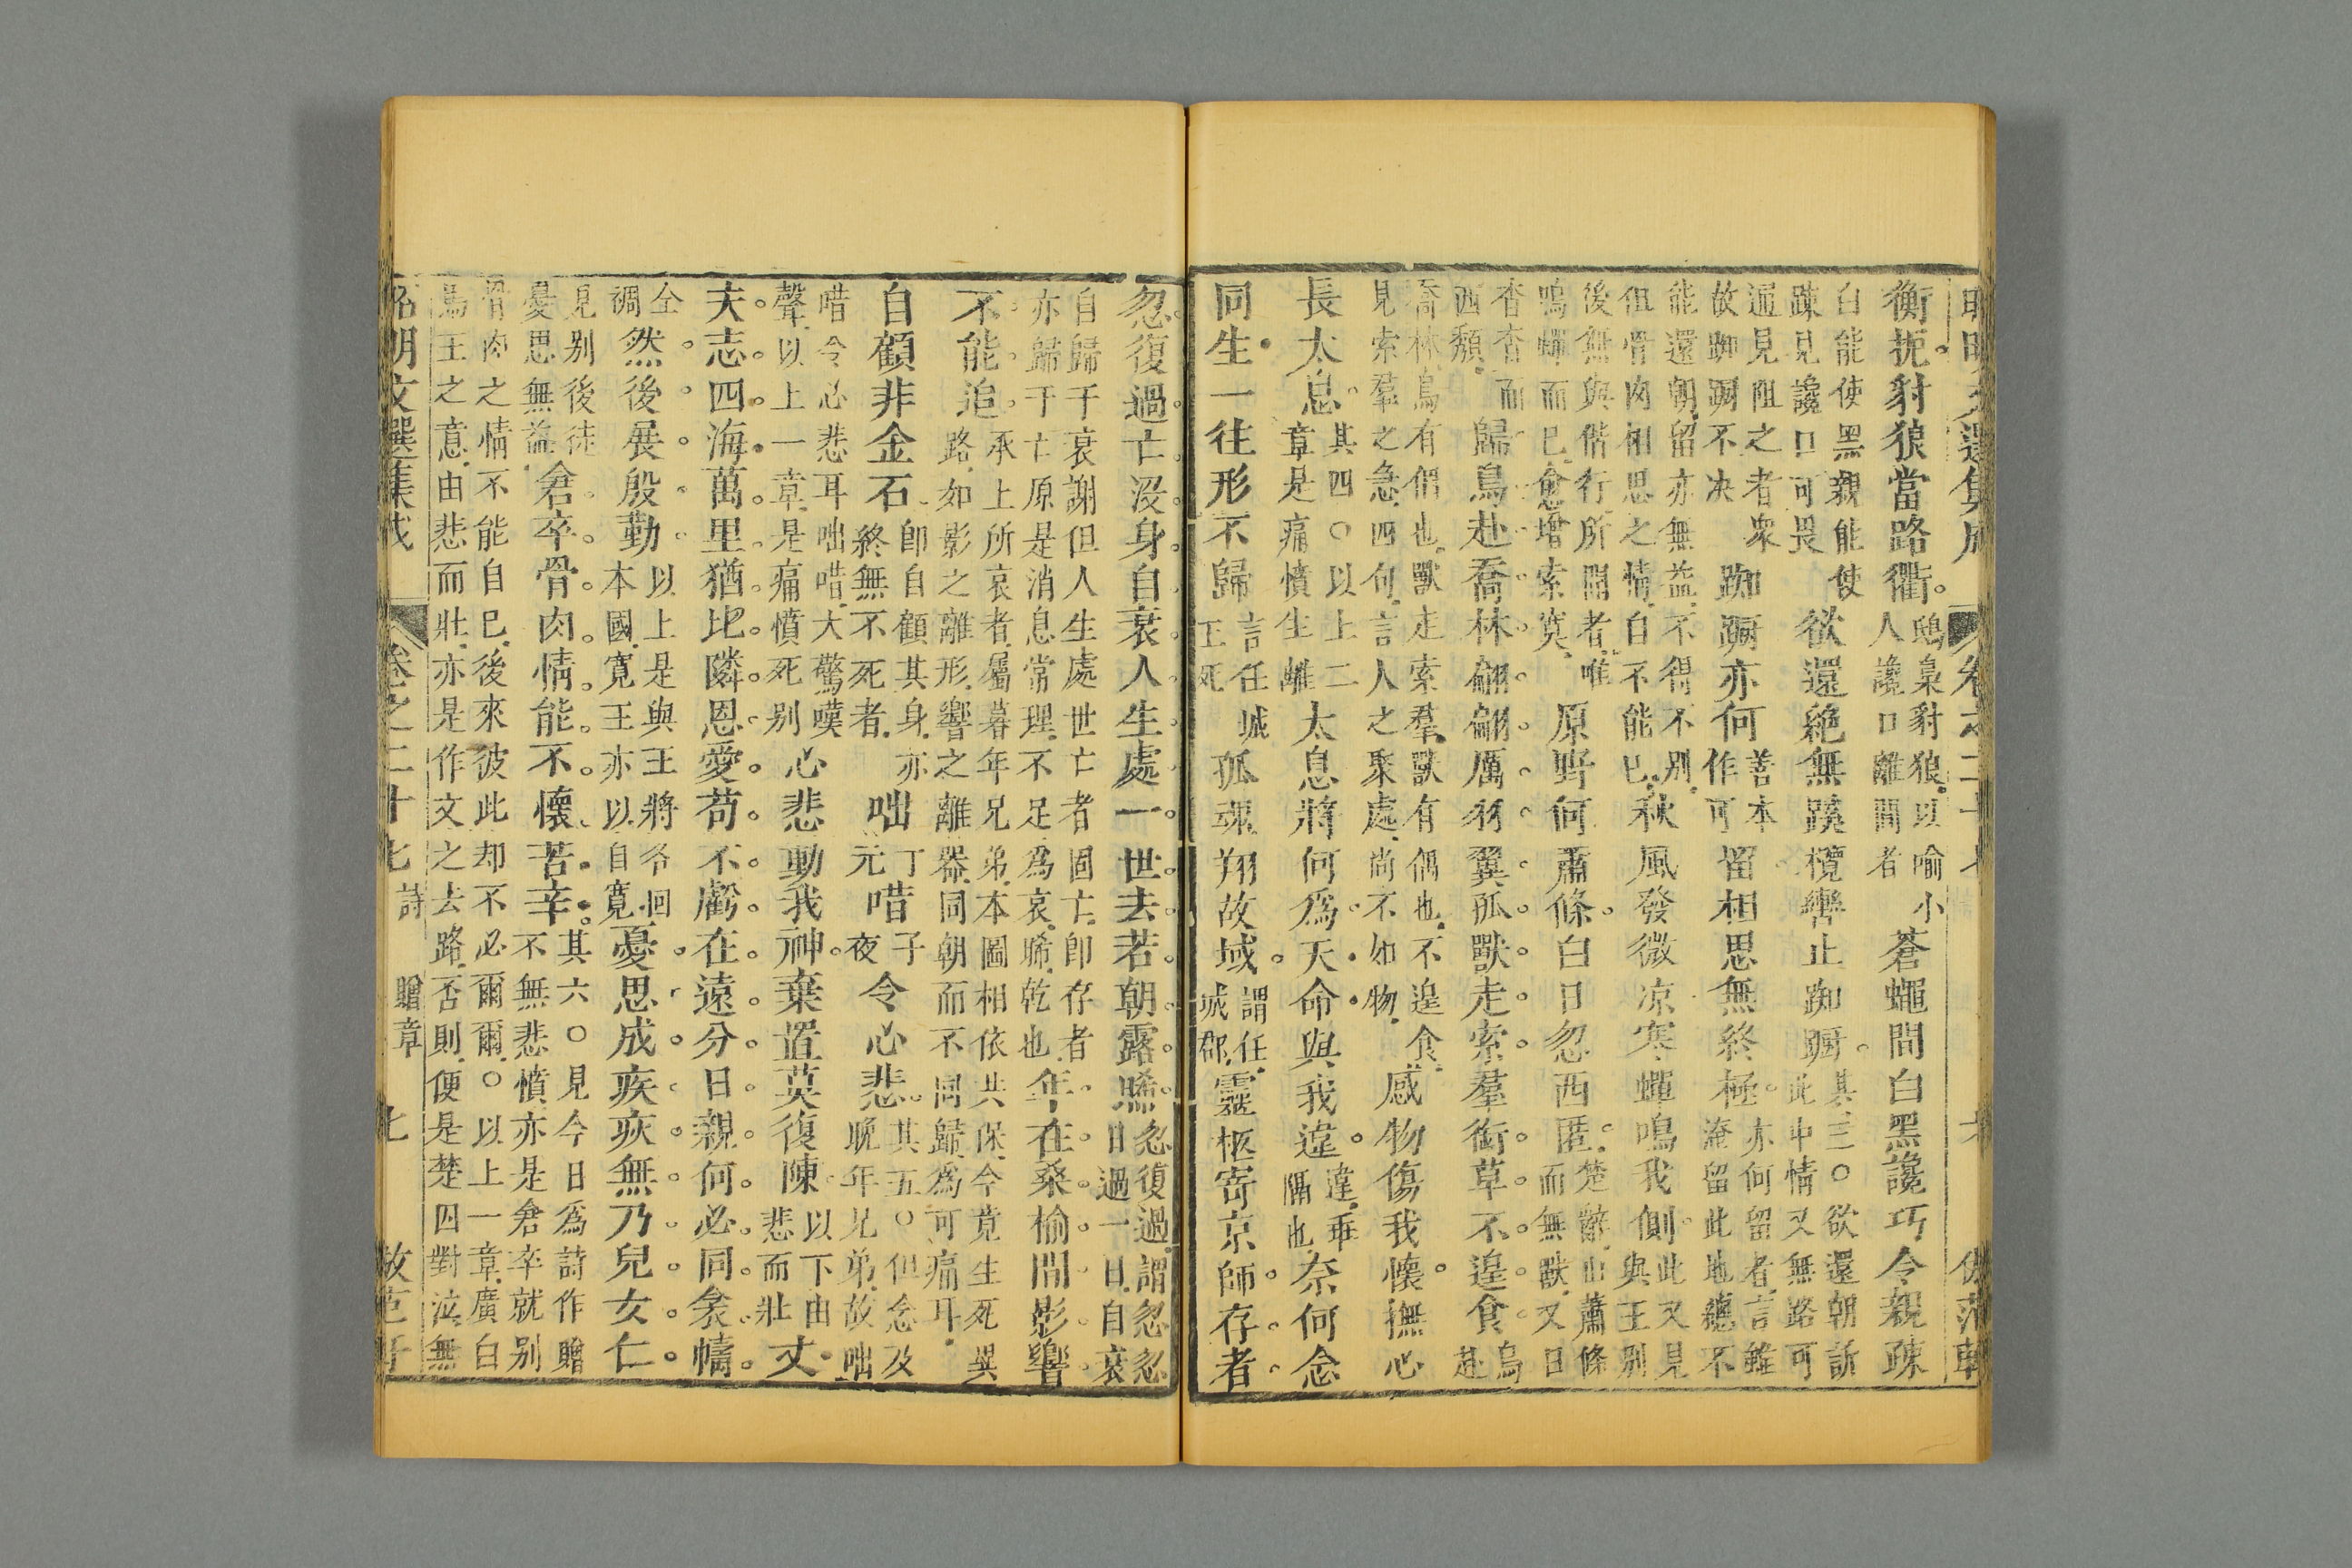 衡扼豺狼當路衢鴟梟豺狼以喻小人讒口離間者蒼蠅間白黑讒巧令親疎
白能使黑親能使疎見讒口可畏欲還絕無蹊欖轡止踟躕其三○欲還朝訴此中情又無路可
通見阻之者衆故踟躕不決踟躕亦何善本作可留相思無終極亦何留者言雖淹留此地總不
能還朝留亦無益不得不別但骨肉相思之情自不能已秋風發微凉寒蟬鳴我側此又見與王別
後無與偕行所聞者唯鳴蟬而已愈增索寞原野何蕭條白日忽西匿楚辭山蕭條而無獸又日
杳杳而西頽歸鳥赴喬林翩翩厲羽翼孤獸走索羣銜草不遑食鳥赴
喬林鳥有侶也獸走索羣獸有偶也不遑食見索羣之急四句言人之聚處尚不如物感物傷我懷撫心
長太息其四○以上二章是痛憤生離太息將何爲天命與我違違乖隔也奈何念
同生一往形不歸言任城王死孤魂翔故域謂任城郡靈柩寄京師存者
忽復過亡沒身自衰人生處一世去若朝露晞忽復過謂忽忽日過一日自衰
自歸于衰謝但人生處世亡者固亡卽存者亦歸于亡原是消息常理不足爲哀晞乾也年在桑榆間影響
不能追承上所哀者屬暮年兄弟本圖相依共保今竟生死異路如影之離形響之離器同朝而不同歸爲可痛耳
自顧非金石卽自顧其身亦終無不死者咄丁元唶子夜令心悲其五○但念及晚年兄弟故咄
唶令心悲耳咄唶大驚嘆聲以上一章是痛憤死別心悲動我神棄置莫復陳以下由悲而壯丈
夫志四海萬里猶比隣恩愛苟不虧在遠分日親何必同衾幬
仝裯然後展殷勤以上是與王將各回本國寬王亦以自寬憂思成疾疢無乃兒女仁
見別後徒憂思無益倉卒骨肉情能不懷苦辛其六○見今日爲詩作贈不無悲憤亦是倉卒就別
骨肉之情不能自已後來彼此却不必爾爾○以上一章廣白馬王之意由悲而壯亦是作文之去路否則便是楚囚對泣無
昭明文選集成 卷之二十七 詩 贈章 七